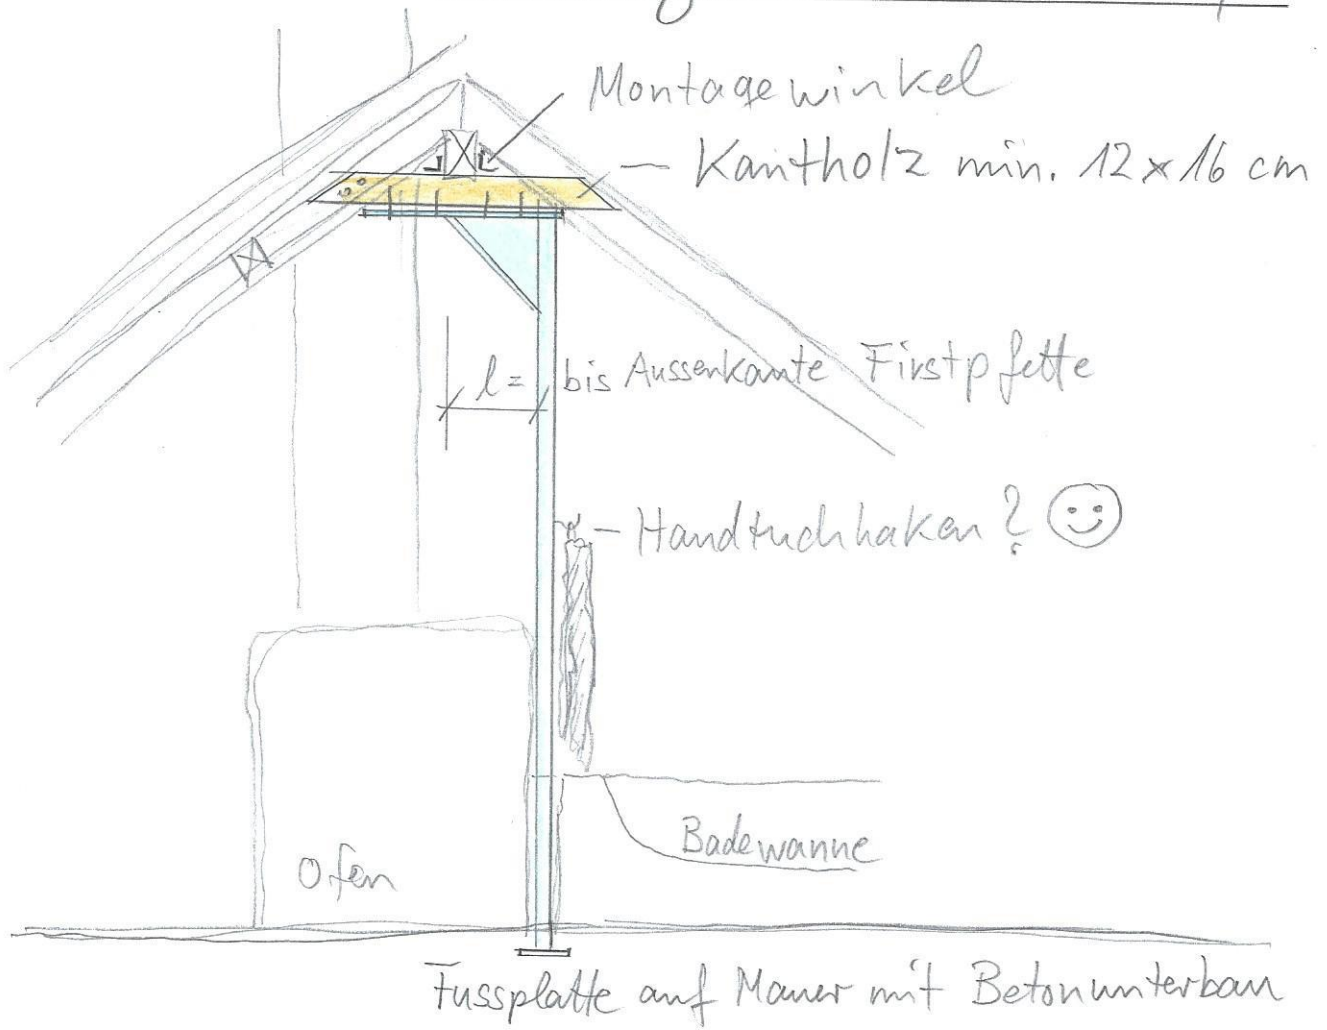 Montagewinkel
Kantholz min. 12 x 16 cm
l = bis Aussenkante Firstpfette
Handtuchhaken?
Badewanne
Ofen
Fussplatte auf Mauer mit Betonunterbau